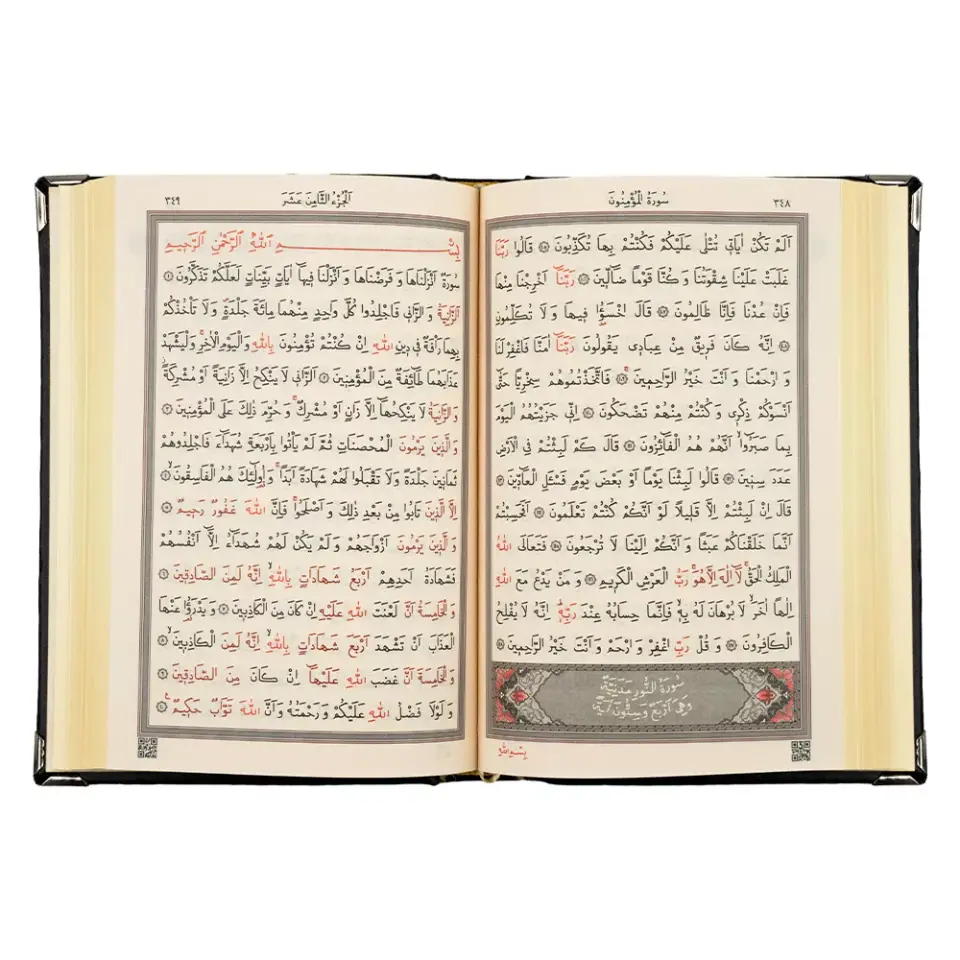 سُورَةُ الْمُؤْمِنُونَ ٣٤٨
اَلَمْ تَكُنْ اٰيَاتٖي تُتْلٰى عَلَيْكُمْ فَكُنْتُمْ بِهَا تُكَذِّبُونَ ﴿١٠٥﴾ قَالُوا رَبَّنَا
غَلَبَتْ عَلَيْنَا شِقْوَتُنَا وَكُنَّا قَوْمًا ضَٓالّٖينَ ﴿١٠٦﴾ رَبَّنَٓا اَخْرِجْنَا مِنْهَا
فَاِنْ عُدْنَا فَاِنَّا ظَالِمُونَ ﴿١٠٧﴾ قَالَ اخْسَؤُ۫ا فٖيهَا وَلَا تُكَلِّمُونِ
﴿١٠٨﴾ اِنَّهُ كَانَ فَرٖيقٌ مِنْ عِبَادٖي يَقُولُونَ رَبَّنَٓا اٰمَنَّا فَاغْفِرْ لَنَا
وَارْحَمْنَا وَاَنْتَ خَيْرُ الرَّاحِمٖينَ ﴿١٠٩﴾ فَاتَّخَذْتُمُوهُمْ سِخْرِيًّا حَتّٰٓى
اَنْسَوْكُمْ ذِكْرٖي وَكُنْتُمْ مِنْهُمْ تَضْحَكُونَ ﴿١١٠﴾ اِنّٖي جَزَيْتُهُمُ الْيَوْمَ
بِمَا صَبَرُٓوا اَنَّهُمْ هُمُ الْفَٓائِزُونَ ﴿١١١﴾ قَالَ كَمْ لَبِثْتُمْ فِي الْاَرْضِ
عَدَدَ سِنٖينَ ﴿١١٢﴾ قَالُوا لَبِثْنَا يَوْمًا اَوْ بَعْضَ يَوْمٍ فَسْـَٔلِ الْعَٓادّٖينَ ﴿١١٣﴾
قَالَ اِنْ لَبِثْتُمْ اِلَّا قَلٖيلًا لَوْ اَنَّكُمْ كُنْتُمْ تَعْلَمُونَ ﴿١١٤﴾ اَفَحَسِبْتُمْ
اَنَّمَا خَلَقْنَاكُمْ عَبَثًا وَاَنَّكُمْ اِلَيْنَا لَا تُرْجَعُونَ ﴿١١٥﴾ فَتَعَالَى اللّٰهُ
الْمَلِكُ الْحَقُّ لَٓا اِلٰهَ اِلَّا هُوَ رَبُّ الْعَرْشِ الْكَرٖيمِ ﴿١١٦﴾ وَمَنْ يَدْعُ مَعَ اللّٰهِ
اِلٰهًا اٰخَرَ لَا بُرْهَانَ لَهُ بِهٖ فَاِنَّمَا حِسَابُهُ عِنْدَ رَبِّهٖ اِنَّهُ لَا يُفْلِحُ
الْكَافِرُونَ ﴿١١٧﴾ وَقُلْ رَبِّ اغْفِرْ وَارْحَمْ وَاَنْتَ خَيْرُ الرَّاحِمٖينَ ﴿١١٨﴾
سُورَةُ النُّورِ مَدَنِيَّةٌ
وَهِيَ اَرْبَعٌ وَسِتُّونَ اٰيَةً
بِسْمِ اللّٰهِ
اَلْجُزْءُ الثَّامِنَ عَشَرَ ٣٤٩
بِسْمِ اللّٰهِ الرَّحْمٰنِ الرَّحٖيمِ
سُورَةٌ اَنْزَلْنَاهَا وَفَرَضْنَاهَا وَاَنْزَلْنَا فٖيهَٓا اٰيَاتٍ بَيِّنَاتٍ لَعَلَّكُمْ تَذَكَّرُونَ ﴿١﴾
اَلزَّانِيَةُ وَالزَّانٖي فَاجْلِدُوا كُلَّ وَاحِدٍ مِنْهُمَا مِائَةَ جَلْدَةٍ وَلَا تَأْخُذْكُمْ
بِهِمَا رَأْفَةٌ فٖي دٖينِ اللّٰهِ اِنْ كُنْتُمْ تُؤْمِنُونَ بِاللّٰهِ وَالْيَوْمِ الْاٰخِرِ وَلْيَشْهَدْ
عَذَابَهُمَا طَٓائِفَةٌ مِنَ الْمُؤْمِنٖينَ ﴿٢﴾ اَلزَّانٖي لَا يَنْكِحُ اِلَّا زَانِيَةً اَوْ مُشْرِكَةً
وَالزَّانِيَةُ لَا يَنْكِحُهَٓا اِلَّا زَانٍ اَوْ مُشْرِكٌ وَحُرِّمَ ذٰلِكَ عَلَى الْمُؤْمِنٖينَ ﴿٣﴾
وَالَّذٖينَ يَرْمُونَ الْمُحْصَنَاتِ ثُمَّ لَمْ يَأْتُوا بِاَرْبَعَةِ شُهَدَٓاءَ فَاجْلِدُوهُمْ
ثَمَانٖينَ جَلْدَةً وَلَا تَقْبَلُوا لَهُمْ شَهَادَةً اَبَدًا وَاُو۬لٰٓئِكَ هُمُ الْفَاسِقُونَ ﴿٤﴾
اِلَّا الَّذٖينَ تَابُوا مِنْ بَعْدِ ذٰلِكَ وَاَصْلَحُوا فَاِنَّ اللّٰهَ غَفُورٌ رَحٖيمٌ ﴿٥﴾
وَالَّذٖينَ يَرْمُونَ اَزْوَاجَهُمْ وَلَمْ يَكُنْ لَهُمْ شُهَدَٓاءُ اِلَّٓا اَنْفُسُهُمْ
فَشَهَادَةُ اَحَدِهِمْ اَرْبَعُ شَهَادَاتٍ بِاللّٰهِ اِنَّهُ لَمِنَ الصَّادِقٖينَ ﴿٦﴾
وَالْخَامِسَةُ اَنَّ لَعْنَتَ اللّٰهِ عَلَيْهِ اِنْ كَانَ مِنَ الْكَاذِبٖينَ ﴿٧﴾ وَيَدْرَؤُ۬ا عَنْهَا
الْعَذَابَ اَنْ تَشْهَدَ اَرْبَعَ شَهَادَاتٍ بِاللّٰهِ اِنَّهُ لَمِنَ الْكَاذِبٖينَ ﴿٨﴾
وَالْخَامِسَةَ اَنَّ غَضَبَ اللّٰهِ عَلَيْهَٓا اِنْ كَانَ مِنَ الصَّادِقٖينَ ﴿٩﴾
وَلَوْلَا فَضْلُ اللّٰهِ عَلَيْكُمْ وَرَحْمَتُهُ وَاَنَّ اللّٰهَ تَوَّابٌ حَكٖيمٌ ﴿١٠﴾